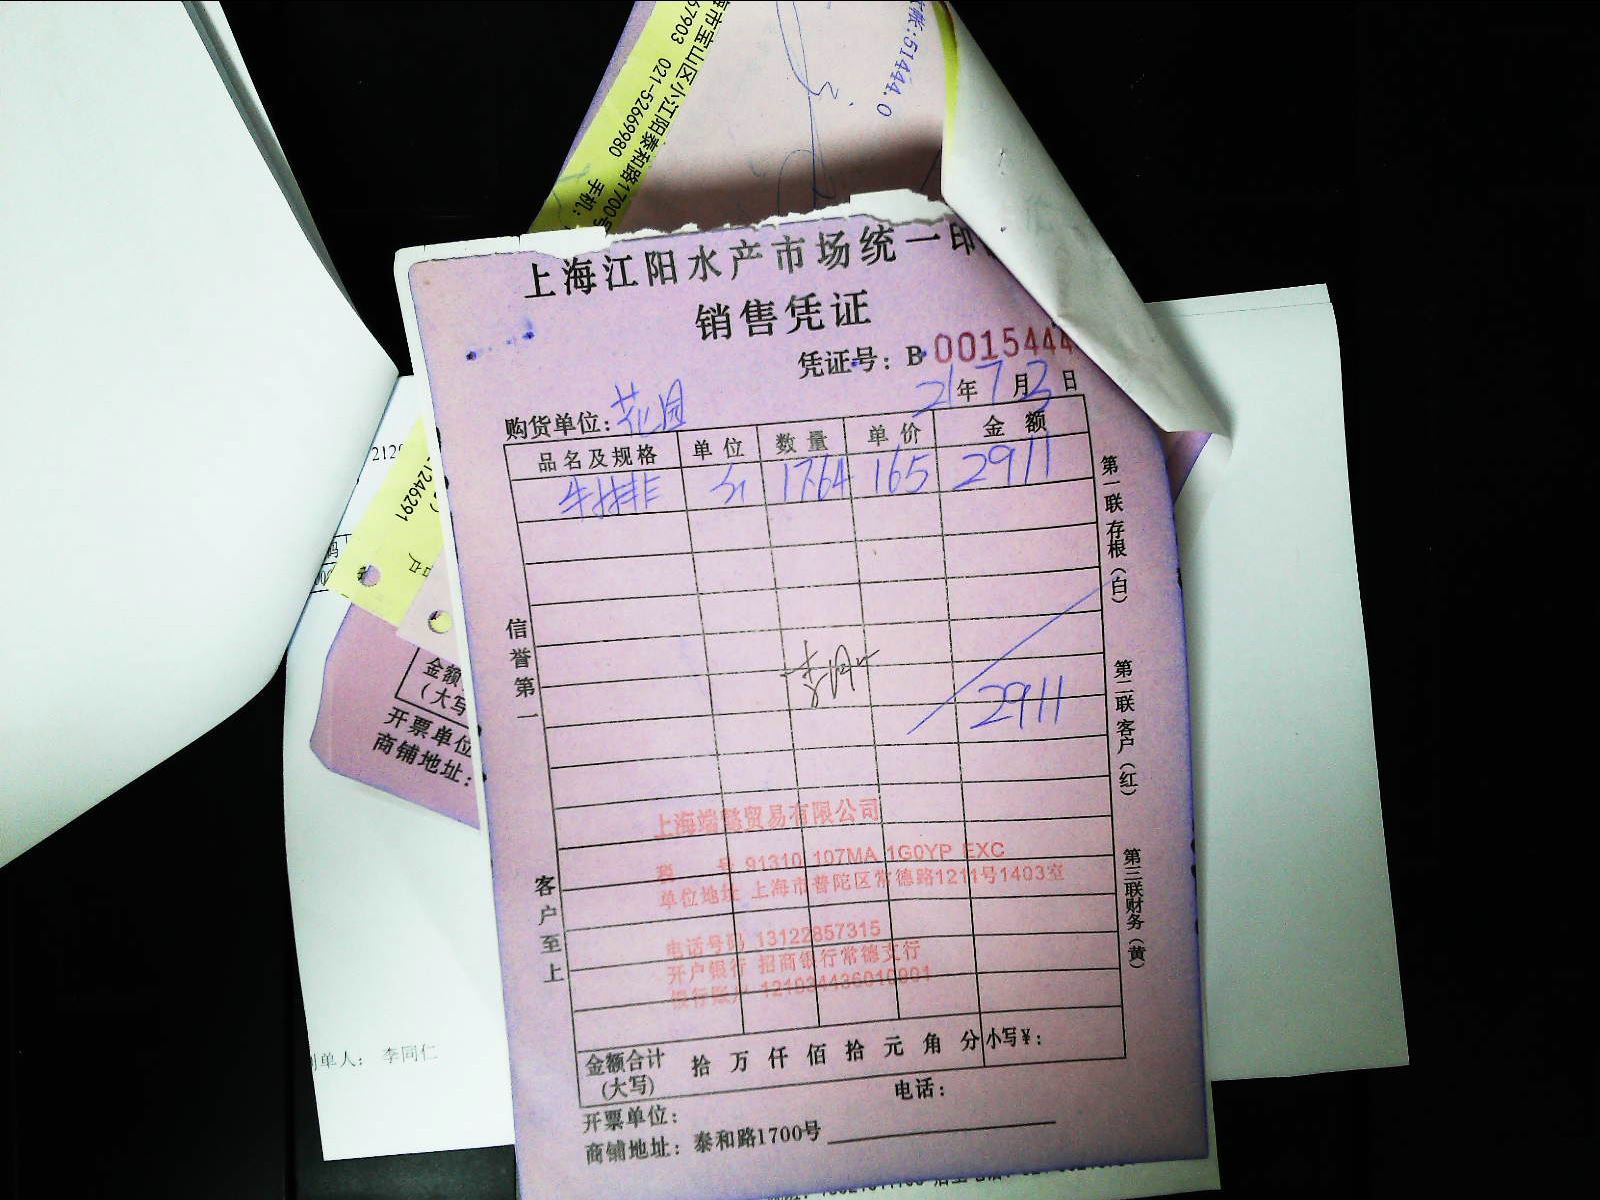 账:51444.0
海市宝山区小江阳泰和路1700号
67903 021-52669980 手机:
上海江阳水产市场统一印
销售凭证
凭证号: B 0015444
21年7月3日
购货单位: 花园
品名及规格 单位 数量 单价 金额
牛排 1764 165 2911
2911
信誉第一
客户至上
第一联存根(白)
第二联客户(红)
第三联财务(黄)
上海端鳌贸易有限公司
税 号 91310 107MA 1G0YP EXC
单位地址 上海市普陀区常德路1211号1403室
电话号码 13122857315
开户银行 招商银行常德支行
银行账户 121934436010901
金额合计(大写) 拾 万 仟 佰 拾 元 角 分 小写¥:
电话:
开票单位:
商铺地址: 泰和路1700号
212
1246291
金额
(大写
开票单位
商铺地址:
制单人: 李同仁